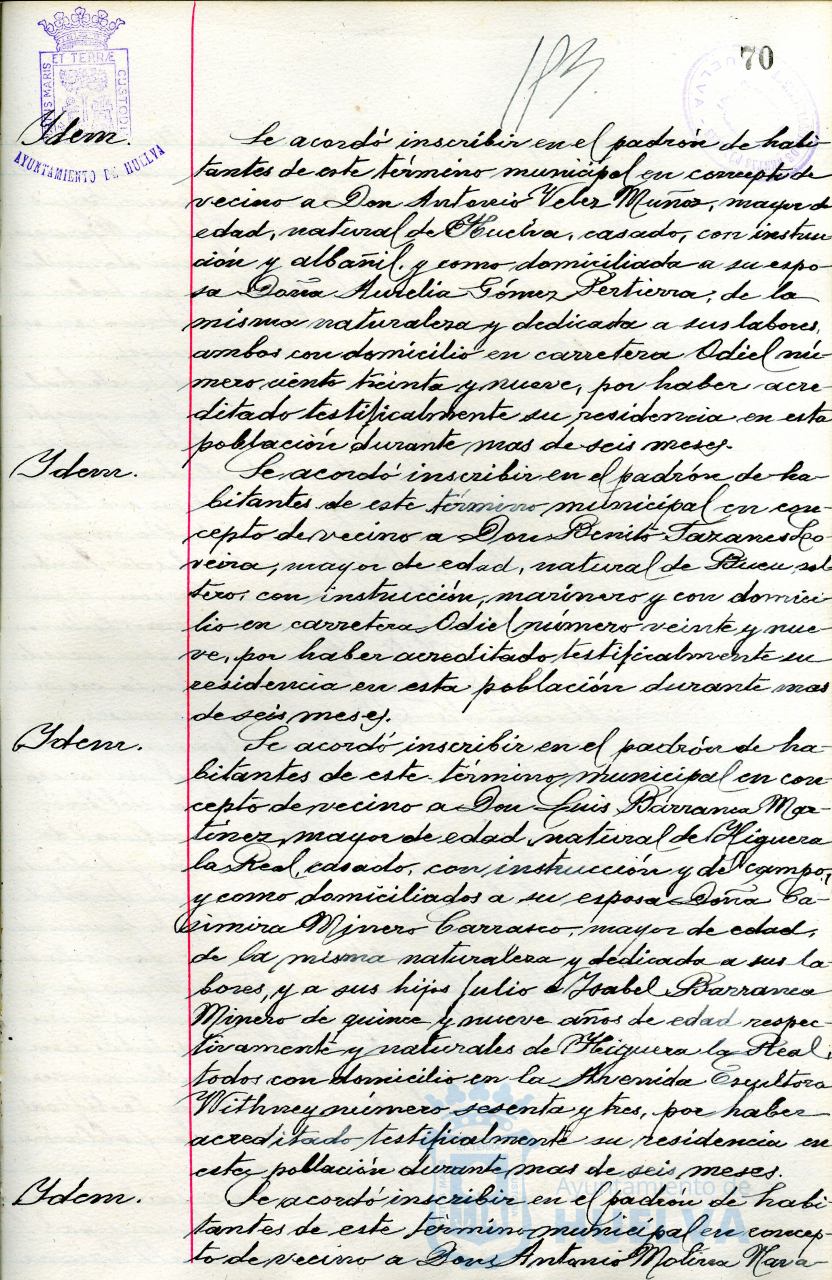 70
183.
ET TERRÆ
CUSTODIA
AYUNTAMIENTO DE HUELVA
HUELVA
Ydem.
Se acordó inscribir en el padrón de habi-
tantes de este término municipal en concepto de
vecino a Don Antonio Velez Muñoz, mayor de
edad, natural de Huelva, casado, con instruc-
ción y albañil, y como domiciliada a su espo-
sa Doña Aurelia Gómez Pertierra, de la
misma naturaleza y dedicada a sus labores,
ambos con domicilio en carretera Odiel nú-
mero ciento treinta y nueve, por haber acre-
ditado testificalmente su residencia en esta
población durante mas de seis meses.
Ydem.
Se acordó inscribir en el padrón de ha-
bitantes de este término municipal en con-
cepto de vecino a Don Benito Tazanes Lo-
veira, mayor de edad, natural de Bueu, sol-
tero, con instrucción, marinero y con domici-
lio en carretera Odiel número veinte y nue-
ve, por haber acreditado testificalmente su
residencia en esta población durante mas
de seis meses.
Ydem.
Se acordó inscribir en el padrón de ha-
bitantes de este término municipal en con-
cepto de vecino a Don Luis Barranca Mar-
tínez, mayor de edad, natural de Higuera
la Real, casado, con instrucción y del campo,
y como domiciliados a su esposa Doña Ca-
simira Minero Carrasco, mayor de edad,
de la misma naturaleza y dedicada a sus la-
bores, y a sus hijos Julio e Ysabel Barranca
Minero de quince y nueve años de edad respec-
tivamente y naturales de Higuera la Real,
todos con domicilio en la Avenida Escultora
Withney número sesenta y tres, por haber
acreditado testificalmente su residencia en
esta población durante mas de seis meses.
Ydem.
Se acordó inscribir en el padrón de habi-
tantes de este término municipal en concep-
to de vecino a Don Antonio Molina Nava-
Ayuntamiento de
HUELVA